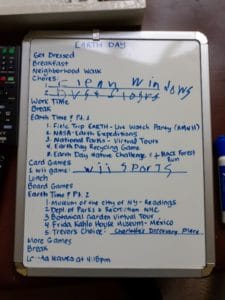 EARTH DAY
Get Dressed
Breakfast
Neighborhood Walk
Chores:
1. Clean Windows
2. Dust Floors
Work Time
Break
Earth Time! Pt. 1
1. Field Trip EARTH - Live Watch Party
2. NASA - Earth Expeditions
3. National Parks - Virtual Tours
4. Earth Day Recycling Game
5. Earth Day Native Challenge
Card Games
1 wii game: wii sports
Lunch
Board Games
Earth Time! Pt 2
1. Museum of the City of NY - Readings
2. Dept of Parks & Recreation NYC
3. Botanical Garden Virtual Tour
4. Frida Kahlo House Museum - Mexico
5. Trevor's Choice - Charlotte's Discovery Place
More Games
Break
leaves at 4:15pm